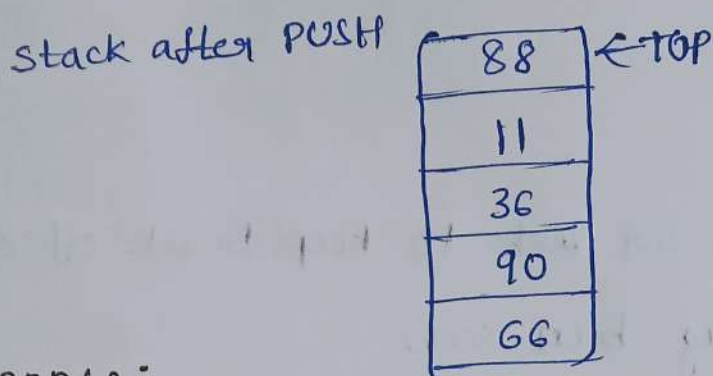 stack after PUSH
88 ← TOP
11
36
90
66